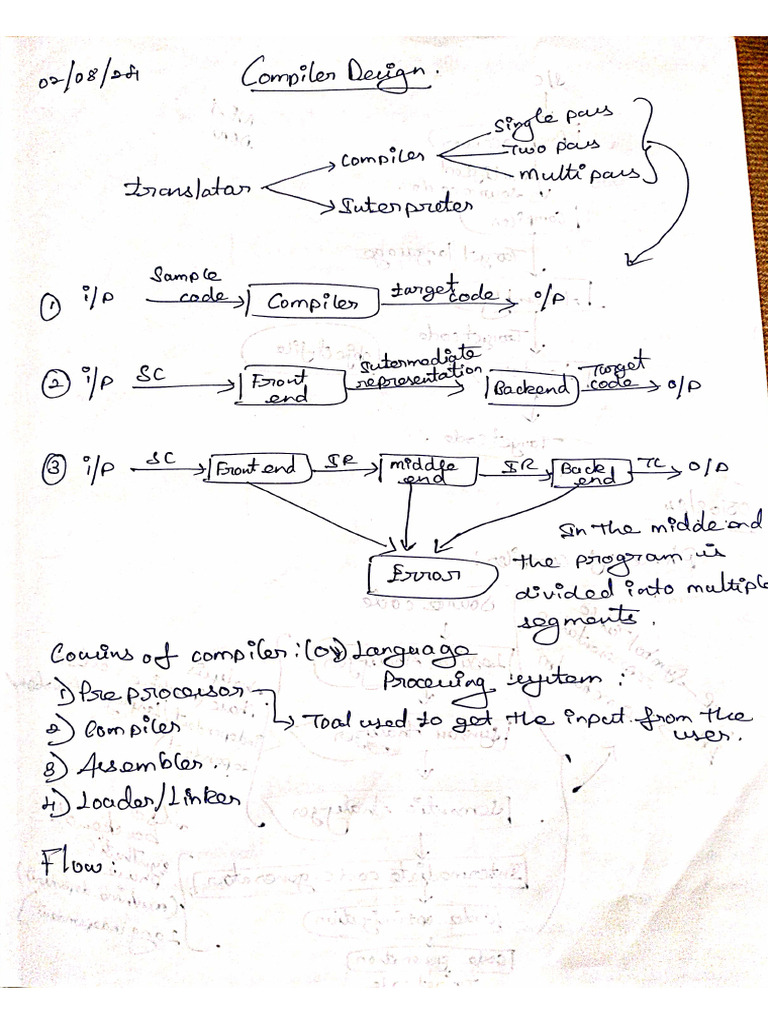 02/08/24
Compiler Design.
Single pass
Compiler
Two pass
Multi pass
Translator
Interpreter
① i/p Sample code Compiler target code o/p
② i/p SC Front end Intermediate representation Backend Target code o/p
③ i/p SC Front end IR middle end IR Back end TC o/p
Error
In the middle end
the program is
divided into multiple
segments.
Cousins of compiler: (or) Language
Processing system:
1) Preprocessor
Tool used to get the input from the
user.
2) Compiler
3) Assembler.
4) Loader/Linker
Flow: